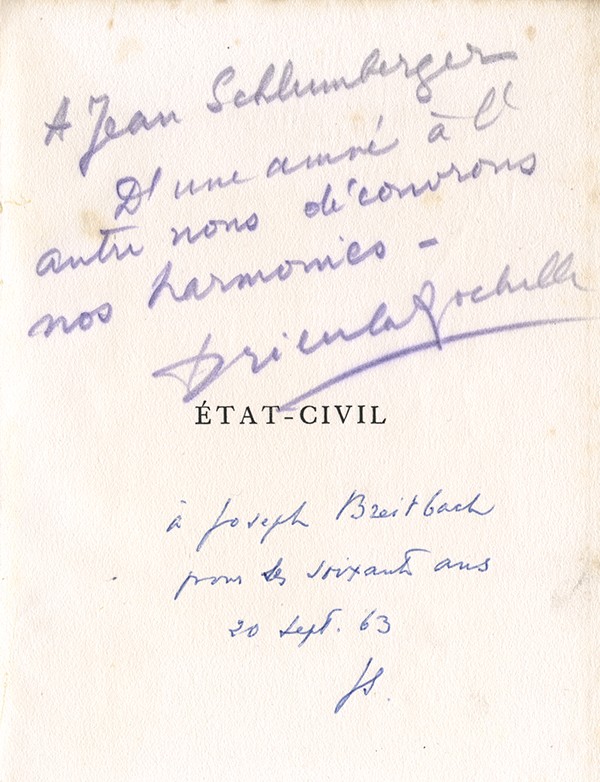 A Jean Schlumberger
D'une année à l'
autre nous découvrons
nos harmonies -
Drieu la Rochelle
ÉTAT-CIVIL
à Joseph Breitbach
pour ses soixante ans
20 sept. 63
JS.